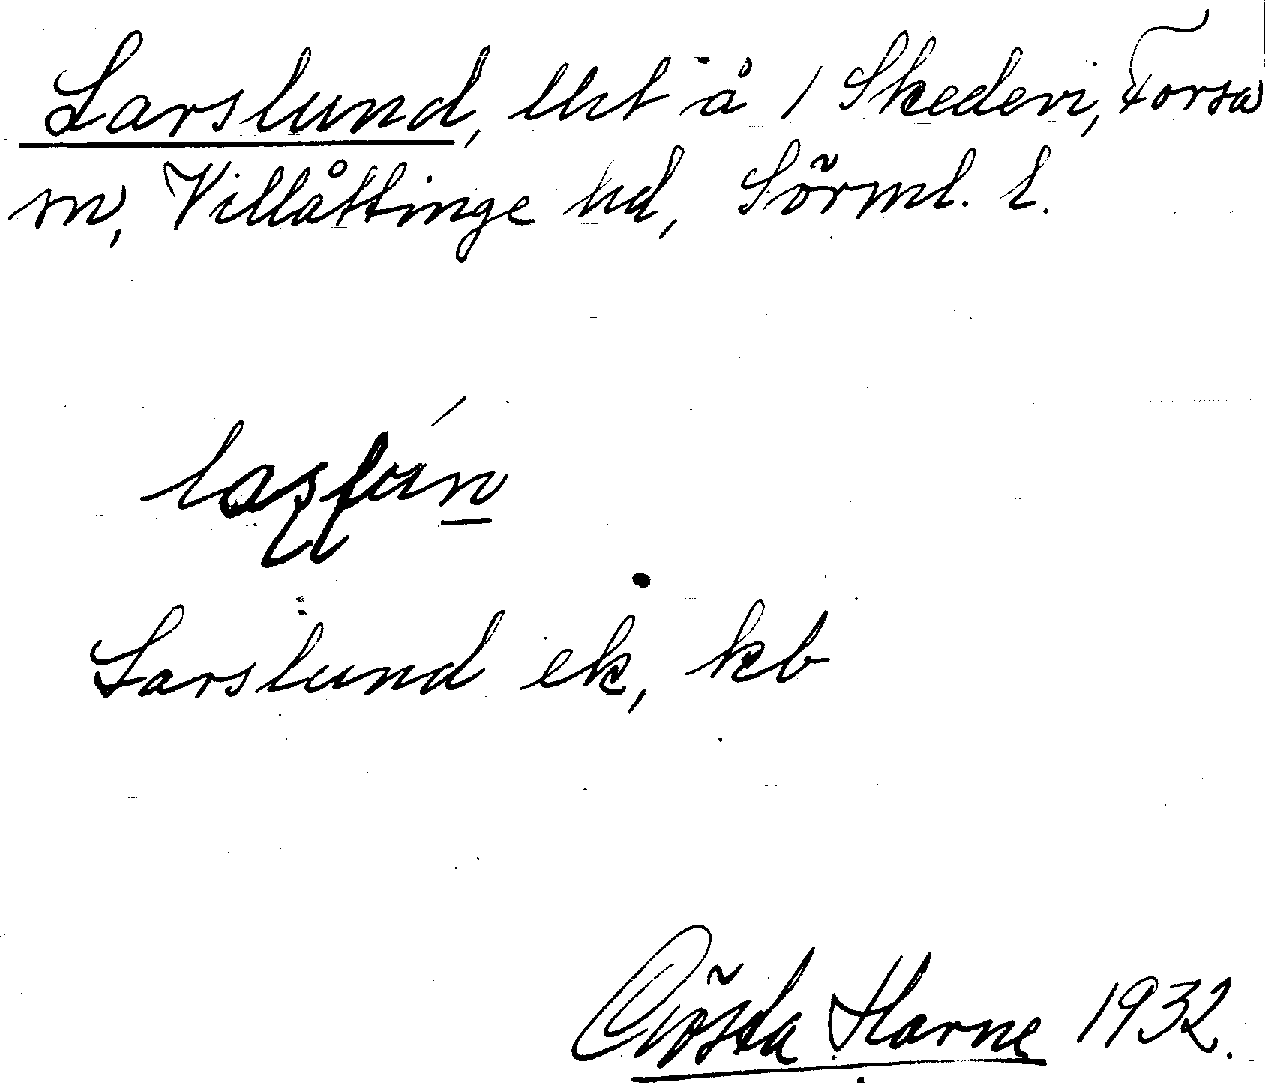 Larslund, lht å 1 Skedevi, Forsa
sn, Villåttinge hd, Sörml. l.
Larslund ek, kb
Gösta Harne 1932.